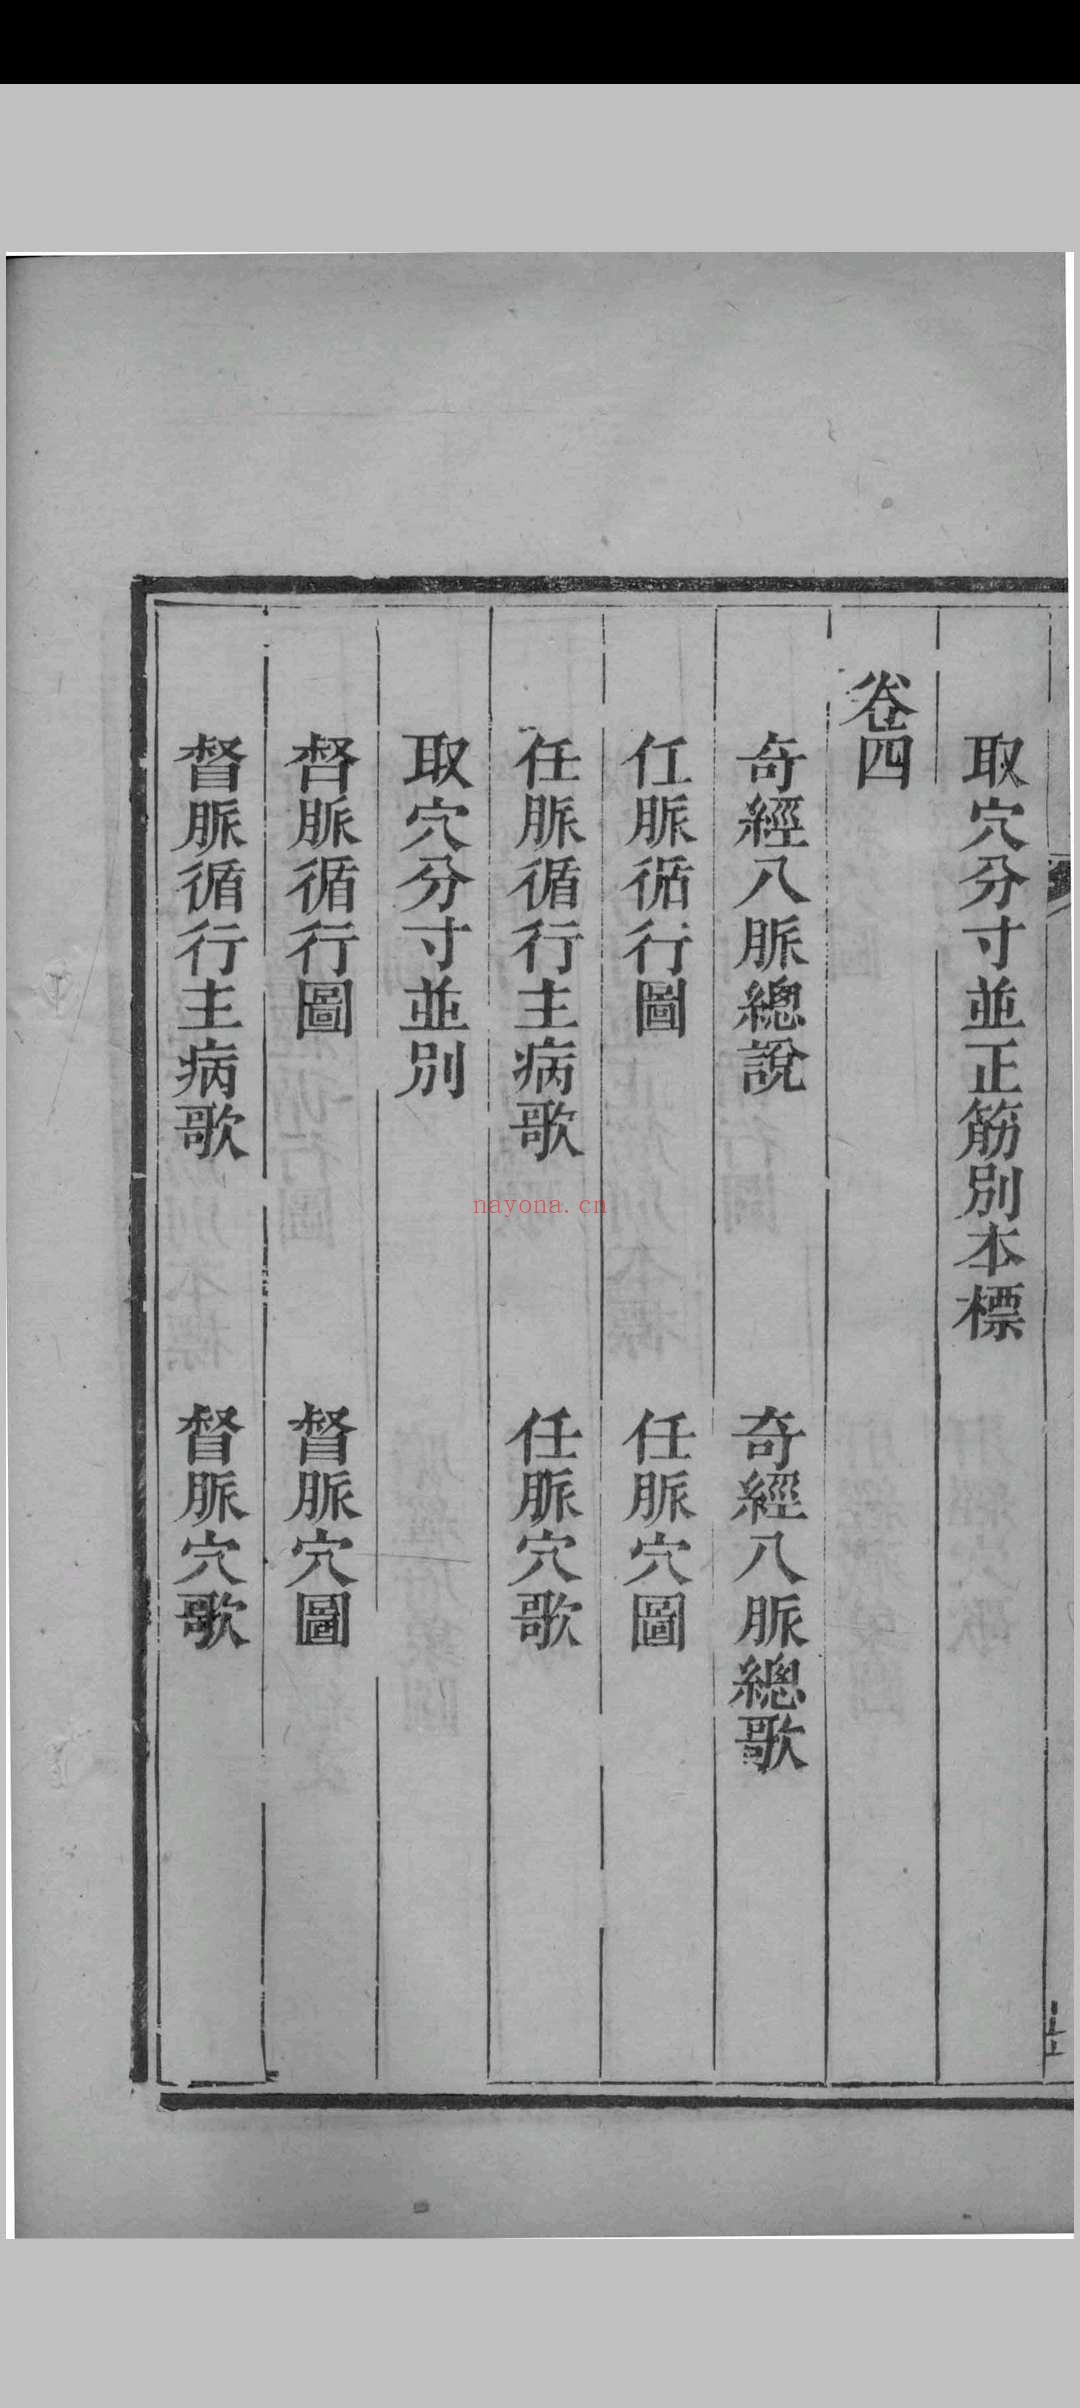 取穴分寸並正筋別本標
卷四
奇經八脈總說　奇經八脈總歌
任脈循行圖　任脈穴圖
任脈循行主病歌　任脈穴歌
取穴分寸並別
督脈循行圖　督脈穴圖
督脈循行主病歌　督脈穴歌
nayona.cn